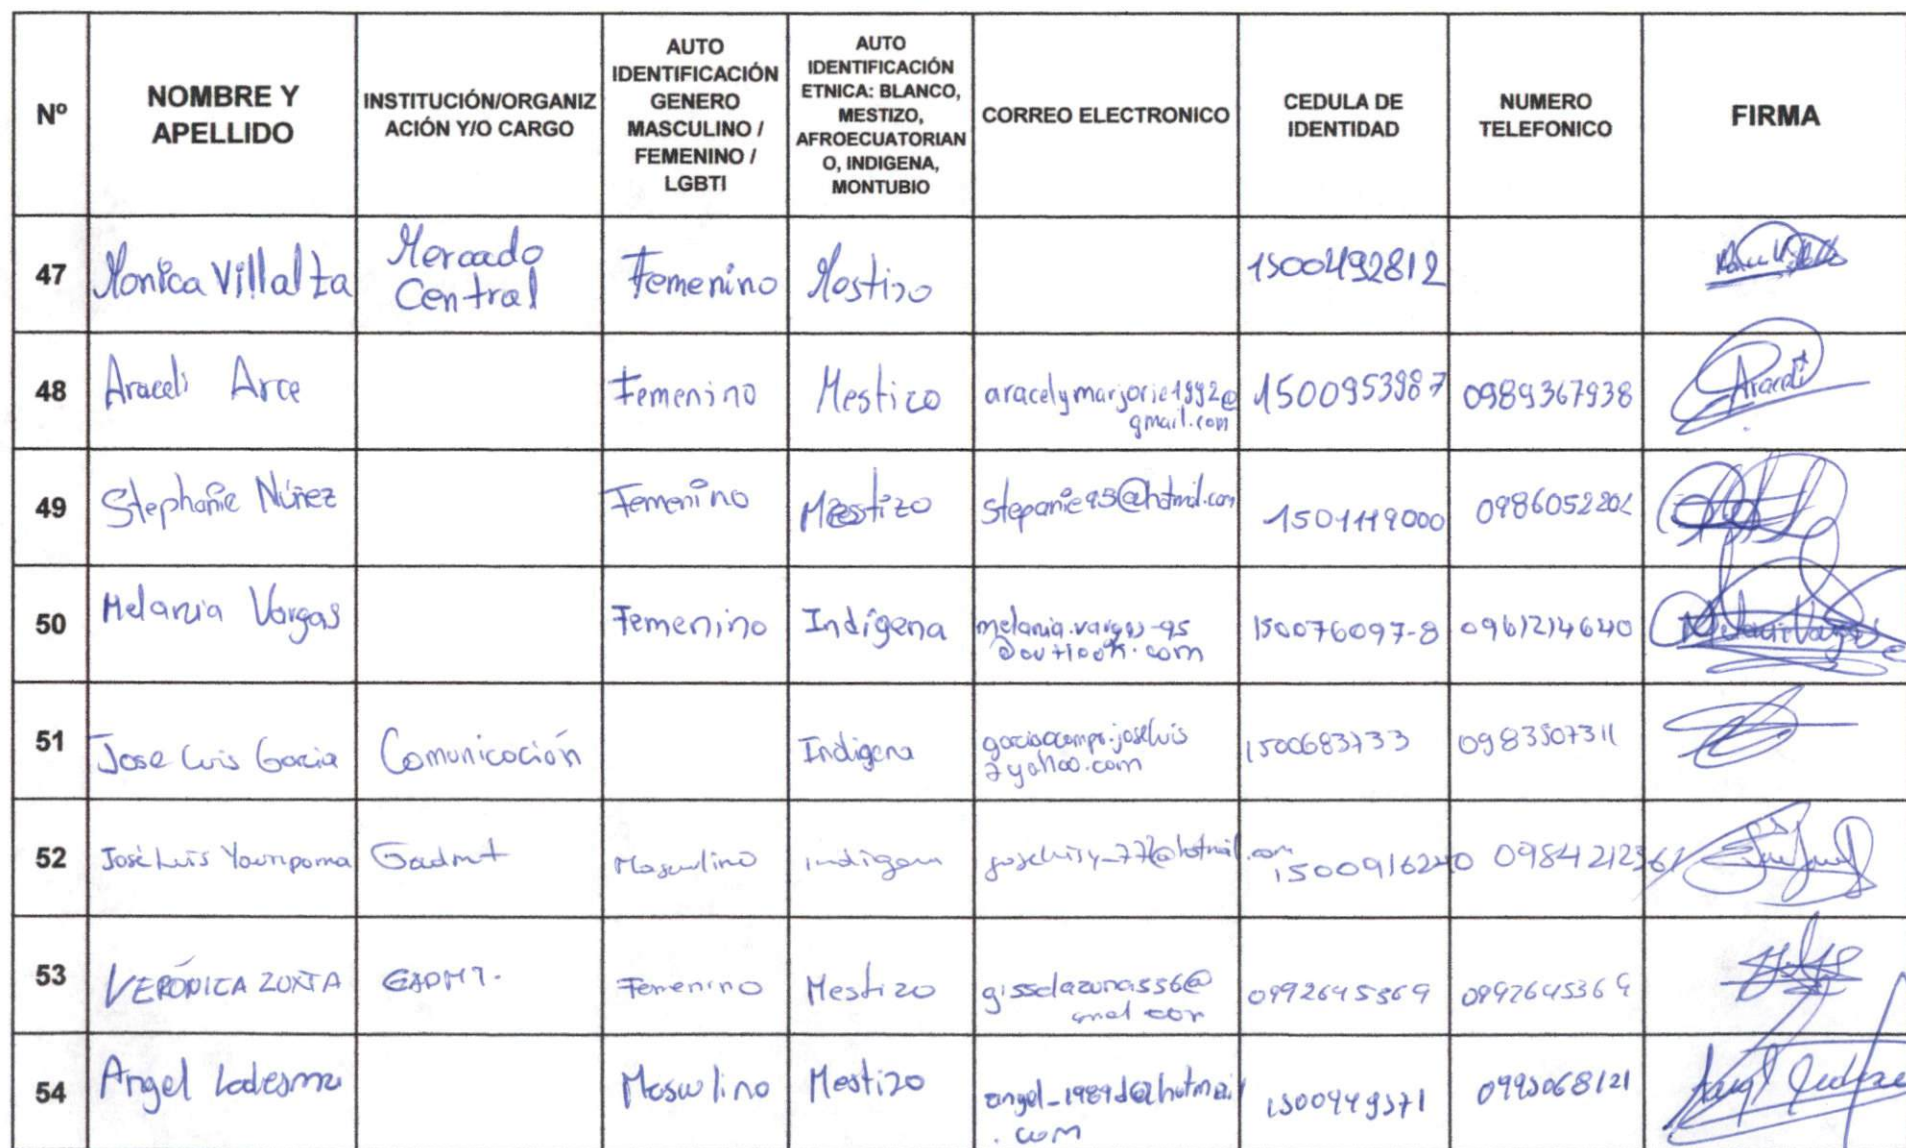 Nº
NOMBRE Y
APELLIDO
INSTITUCIÓN/ORGANIZ
ACIÓN Y/O CARGO
AUTO
IDENTIFICACIÓN
GENERO
MASCULINO /
FEMENINO /
LGBTI
AUTO
IDENTIFICACIÓN
ETNICA: BLANCO,
MESTIZO,
AFROECUATORIAN
O, INDIGENA,
MONTUBIO
CORREO ELECTRONICO
CEDULA DE
IDENTIDAD
NUMERO
TELEFONICO
FIRMA
47
Monica Villalta
Mercado
Central
Femenino
Mestizo
1500492812
48
Araceli Arce
Femenino
Mestizo
aracelymarjorie1992@
gmail.com
1500953987
0989367938
Araceli
49
Stephanie Núñez
Femenino
Mestizo
1501119000
0986052202
50
Melania Vargas
Femenino
Indígena
melania.vargas-95
@outlook.com
150076097-8
0961214640
Melania Vargas
51
Jose Luis Garcia
Comunicación
Indigena
1500683733
0983507311
52
José Luis
Gadmt
Masculino
indigena
1500916240
53
VERÓNICA
GADMT.
Femenino
Mestizo
0992645369
0992645369
54
Angel Ledesma
Masculino
Mestizo
angel_1989d@hotmail
.com